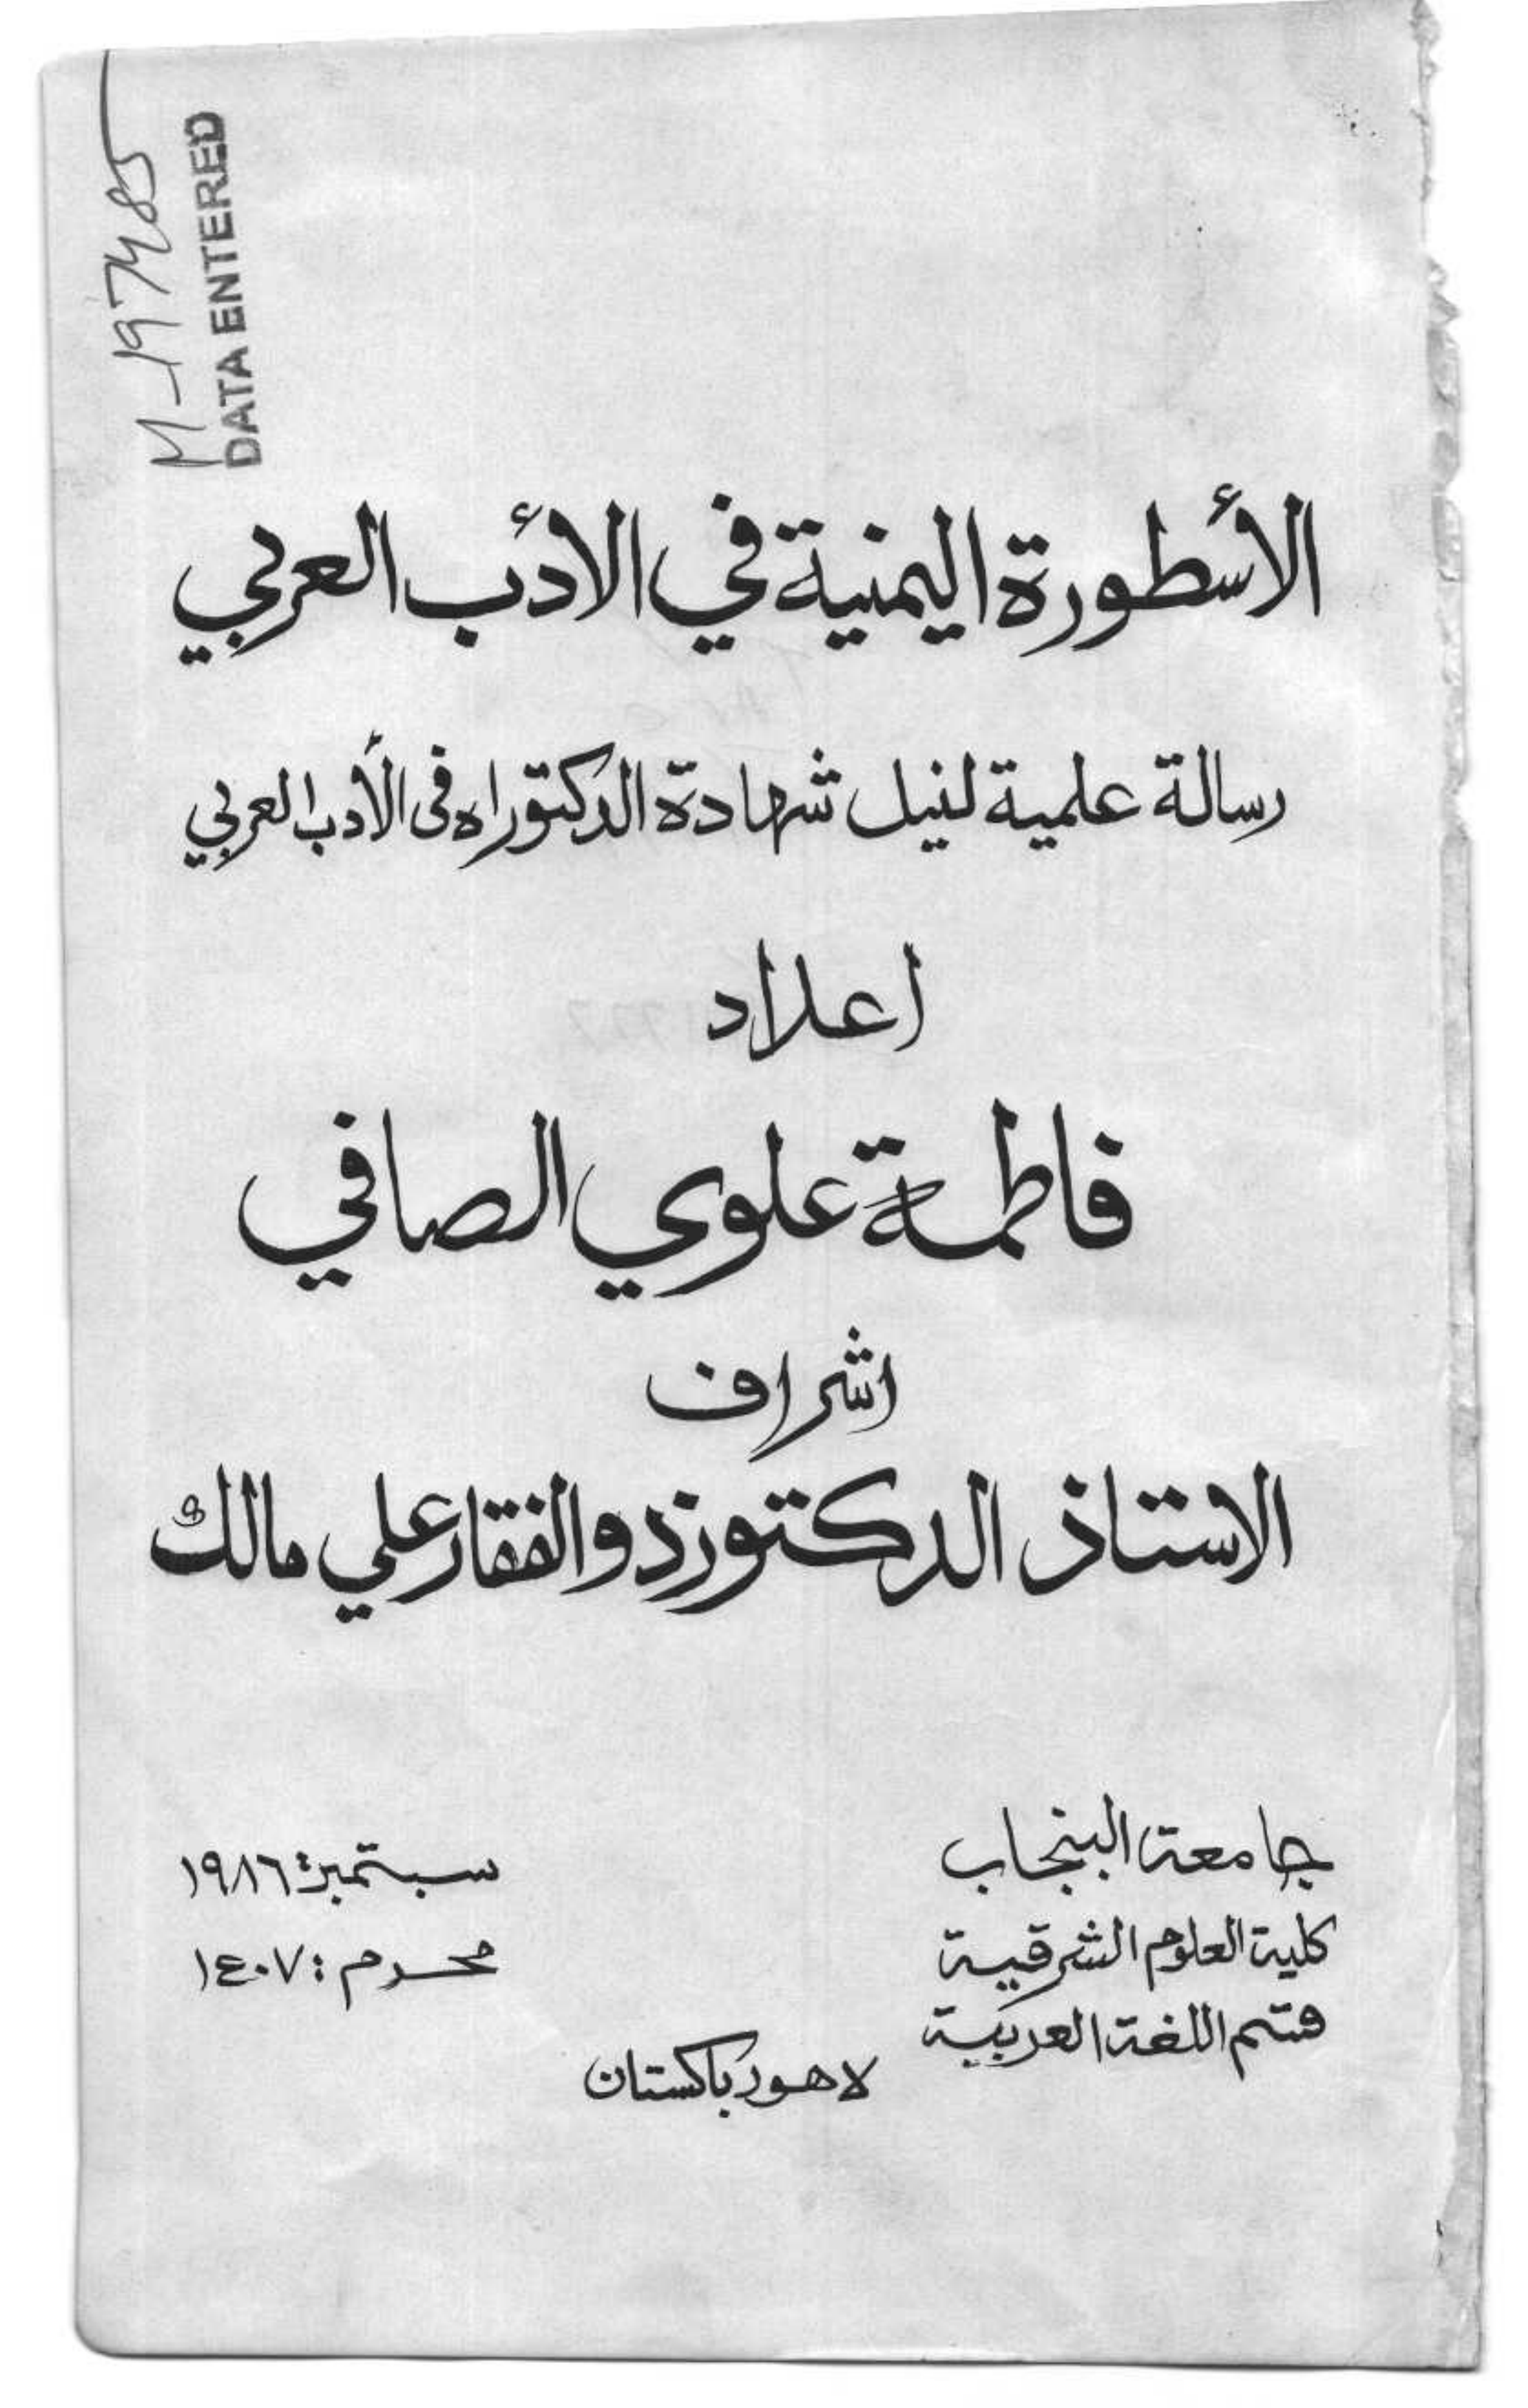 M-197485
DATA ENTERED
الأسطورة اليمنية في الأدب العربي
رسالة علمية لنيل شهادة الدكتوراه فى الأدب العربي
اعداد
فاطمة علوي الصافي
اشراف
الاستاذ الدكتور ذوالفقار علي مالك
جامعة البنجاب
كلية العلوم الشرقية
قسم اللغة العربية
سبتمبر: ١٩٨٦
محرم: ١٤٠٧
لاهور باكستان